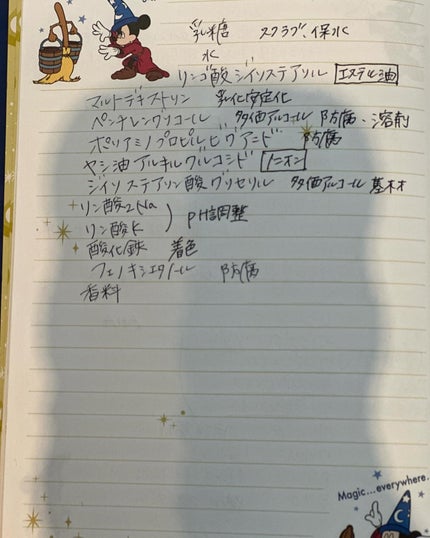 乳糖 スクラブ、保水
水
リンゴ酸ジイソステアリル エステル油
マルトデキストリン 乳化安定化
ペンチレングリコール 多価アルコール 防腐・溶剤
ポリアミノプロピルビグアニド 防腐
ヤシ油アルキルグルコシド ノニオン
ジイソステアリン酸グリセリル 多価アルコール 基材
リン酸2Na
リン酸K ) pH調整
酸化鉄 着色
フェノキシエタノール 防腐
香料
Magic...everywhere.